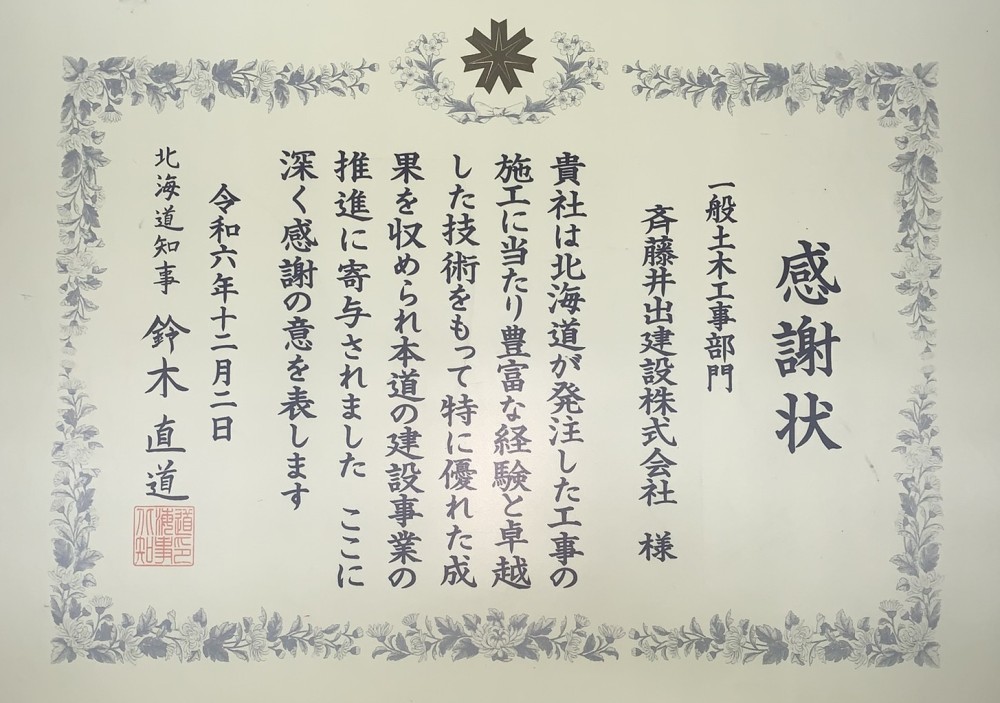 感謝状
一般土木工事部門
斉藤井出建設株式会社 様
貴社は北海道が発注した工事の
施工に当たり豊富な経験と卓越
した技術をもって特に優れた成
果を収められ本道の建設事業の
推進に寄与されました ここに
深く感謝の意を表します
令和六年十二月二日
北海道知事 鈴木直道